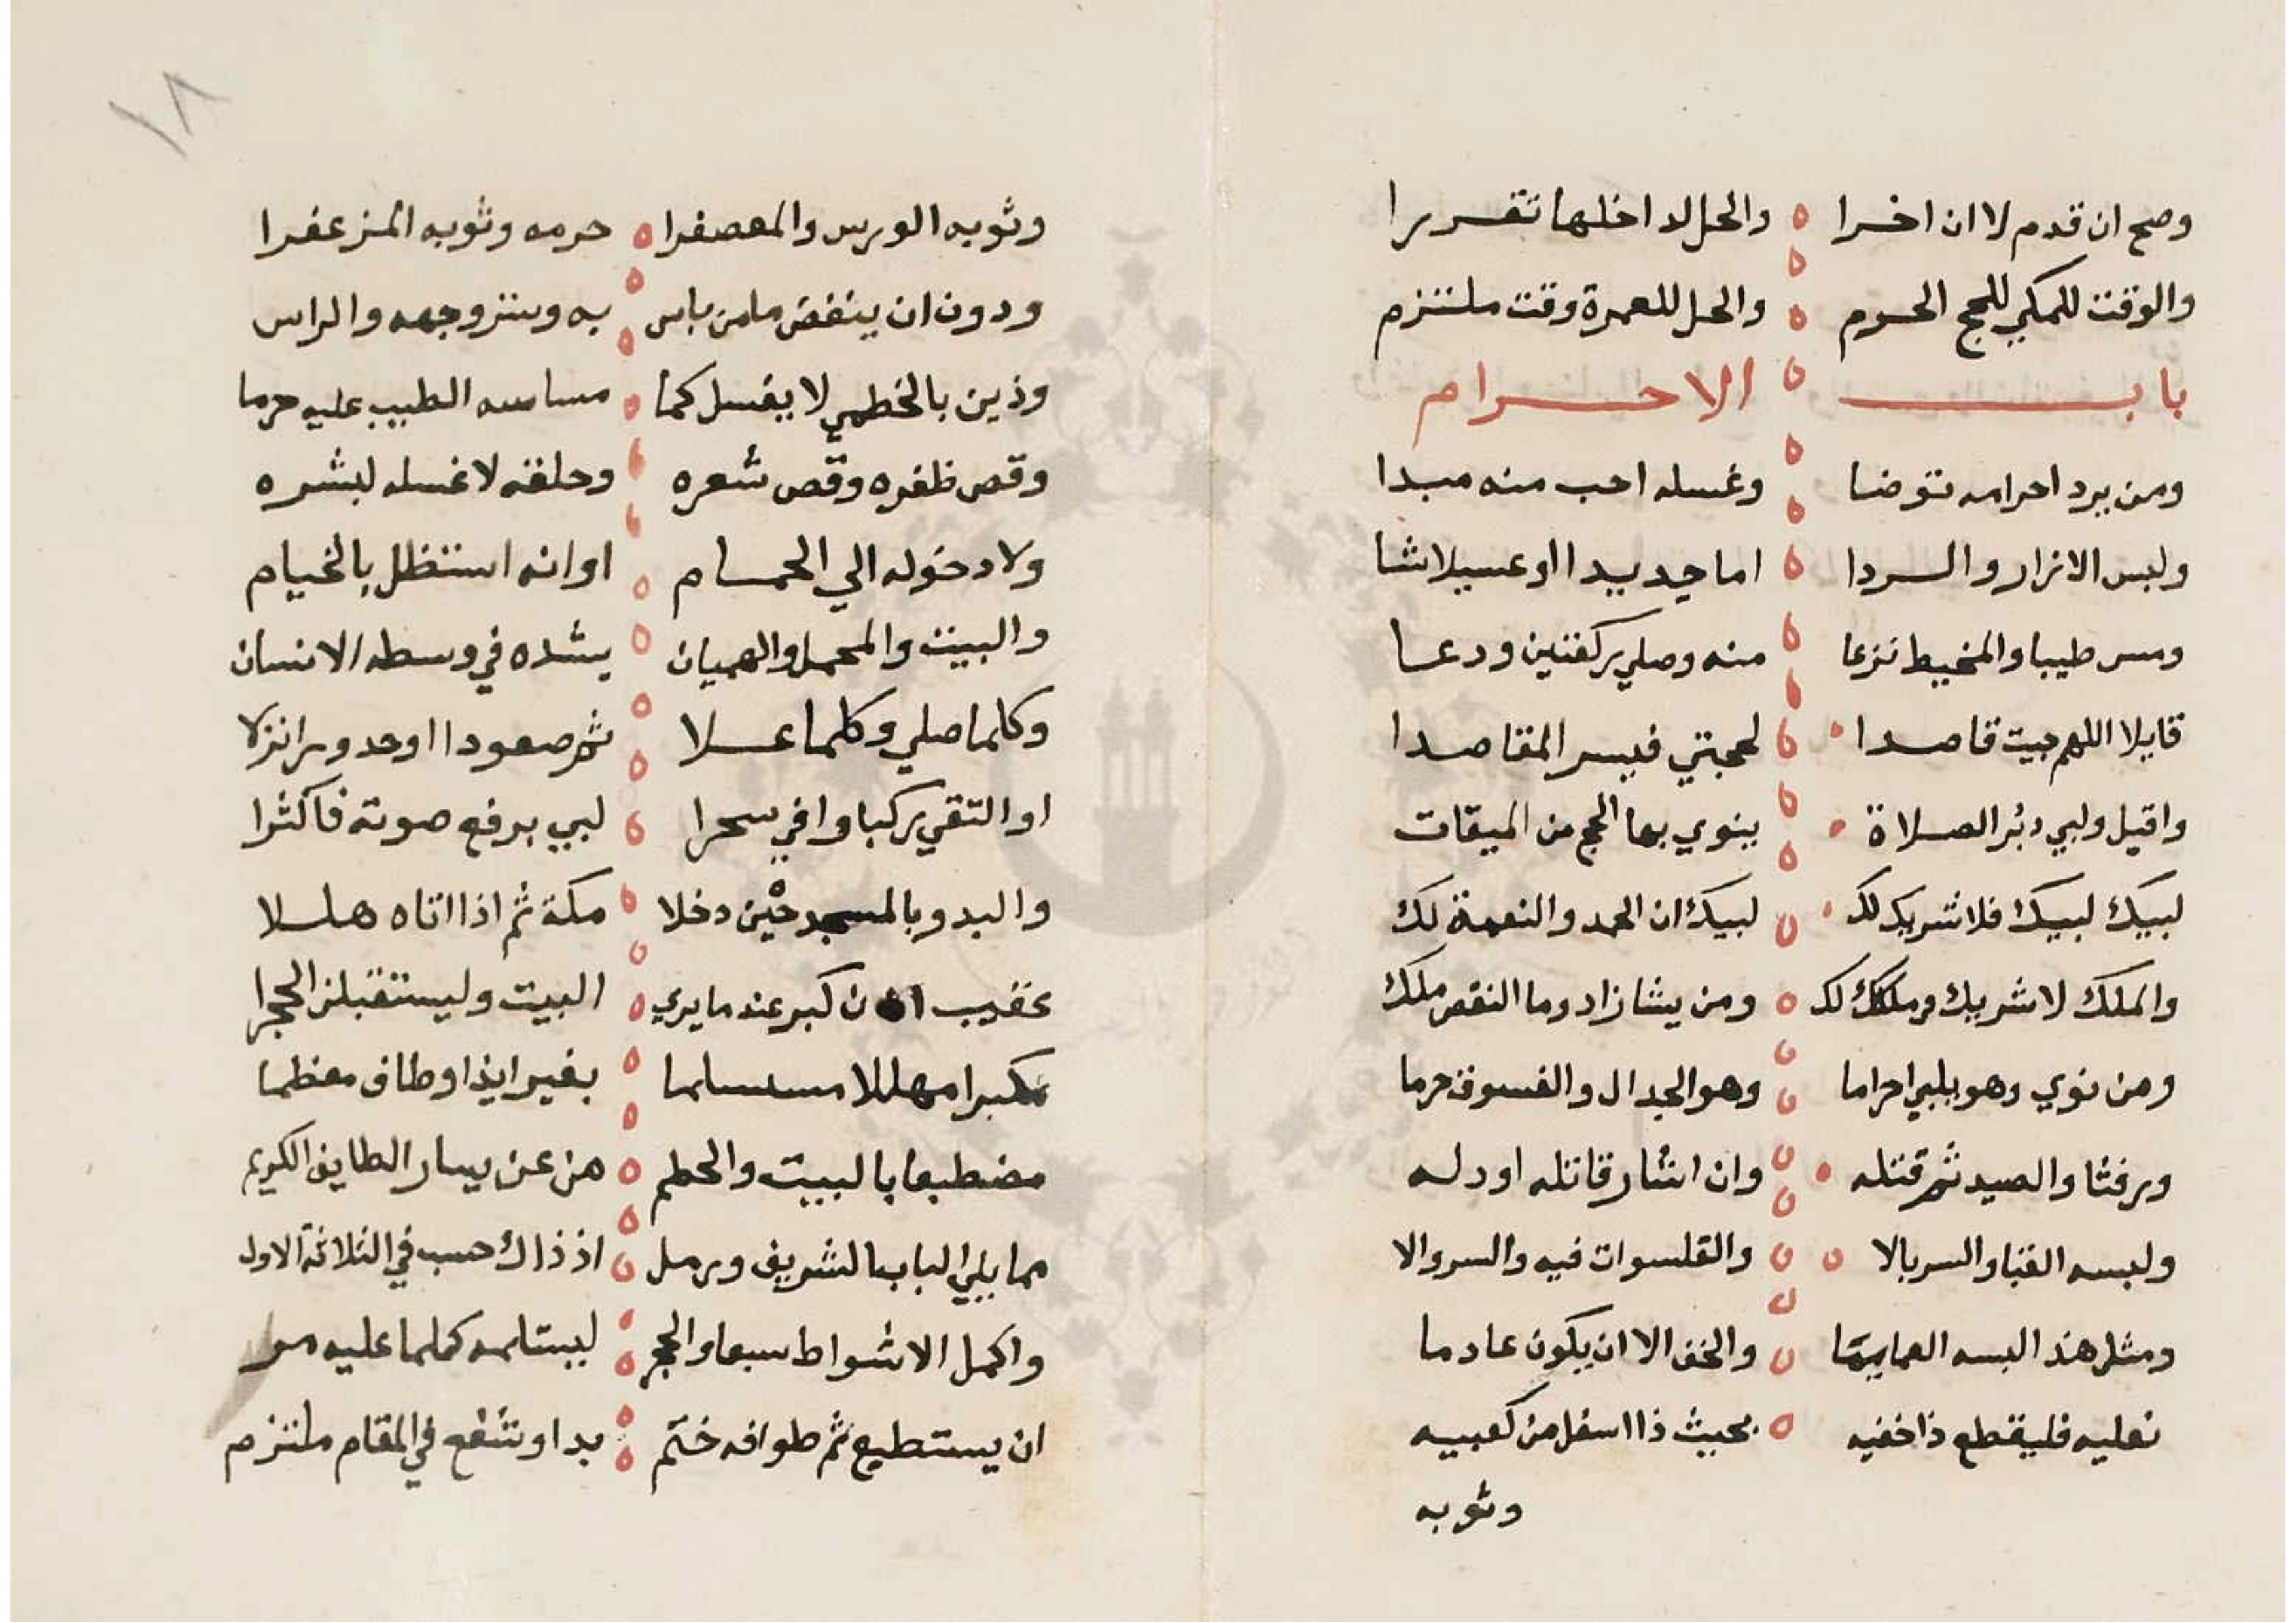 وصح ان قدم لا ان اخرا والحل لداخلها تقررا
والوقت للمكي للحج الحرم والحل للعمرة وقت ملتزم
باب الاحرام
ومن يرد احرامه توضا وغسله احب منه مبدا
ولبس الازار والردا اما جديدا او غسيلا شا
ومس طيبا والمخيط نزعا منه وصلي ركعتين ودعا
قايلا اللهم جيت قاصدا لحجتي فيسر المقاصدا
واقبل ولبي دبر الصلاة ينوي بها الحج من الميقات
لبيك لبيك فلا شريك لك لبيك ان الحمد والنعمة لك
والملك لا شريك لك ومن يشا زاد وما النقص ملك
ومن نوي وهو يلبي احراما وهو الجدال والفسوق حرما
ورفثا والصيد ثم قتله وان اشار قاتله او دله
ولبسه القبا والسربالا والقلسوات فيه والسروالا
ومثل هذا لبسه العمايما والخف الا ان يكون عادما
نعليه فليقطع ذا خفيه بحيث ذا اسفل من كعبيه
وثوبه
١٨
وثوبه الورس والمعصفرا حرمه وثوبه المزعفرا
ودون ان ينفض ما من باس به وستر وجهه والراس
وذين بالخطمي لا يغسل كما مساسه الطيب عليه حرما
وقص ظفره وقص شعره وحلقه لا غسله لبشره
ولا دخوله الي الحمام او انه استظل بالخيام
والبيت والمحمل والهميان يشده في وسطه الانسان
وكلما صلي وكلما علا ثم صعودا او حدورا نزلا
او التقي ركبا وافي سحرا لبي برفع صوته فاكثرا
والبدو بالمسجد حين دخلا مكة ثم اذا اتاه هللا
عقيب ان كبر عند ما يري البيت وليستقبلن الحجرا
مكبرا مهللا مستلما بغير ايذا وطاف معظما
مضطبعا بالبيت والحطيم هن عن يسار الطايف الكريم
مما يلي الباب الشريف ورمل اذ ذاك حسب في الثلاثة الاول
واكمل الاشواط سبعا والحجر ليستلمه كلما عليه مر
ان يستطيع ثم طوافه ختم بدا وشفع في المقام ملتزم